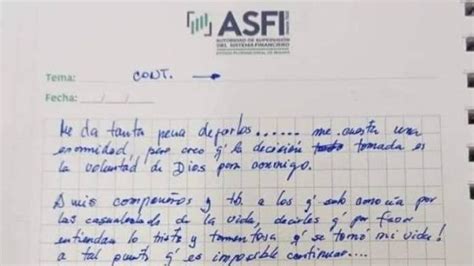 ASFI
AUTORIDAD DE SUPERVISIÓN
DEL SISTEMA FINANCIERO
Tema: CONT. →
Fecha: / /
Me da tanta pena dejarlos...... me cuesta una
enormidad pero creo q' la decisión tomada es
la voluntad de Dios para conmigo.
A mis compañeros y tb. a los q' solo conocía por
las casualidades de la vida, decirles q' por favor
entiendan lo triste y tormentosa q' se tornó mi vida!
a tal punto q' es imposible continuar....